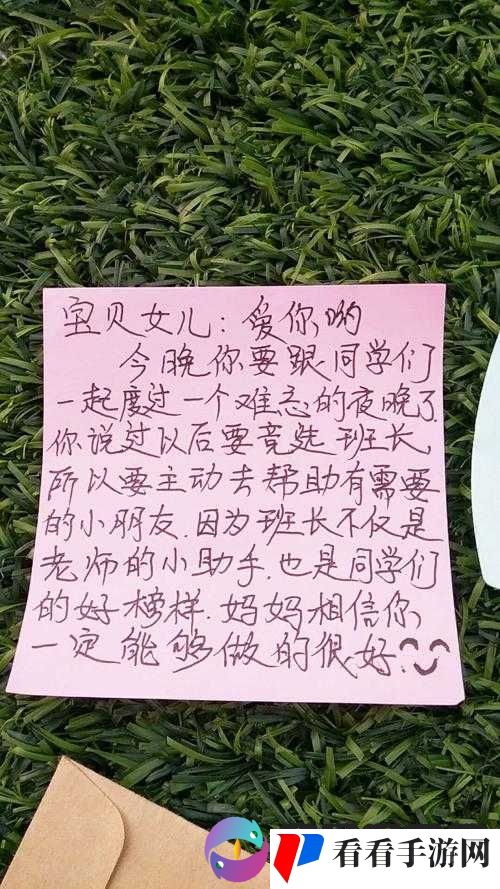 宝贝女儿：爱你哟
今晚你要跟同学们
一起度过一个难忘的夜晚了.
你说过以后要竞选班长,
所以要主动去帮助有需要
的小朋友.因为班长不仅是
老师的小助手.也是同学们
的好榜样.妈妈相信你
一定能够做的很好.
看看手游网